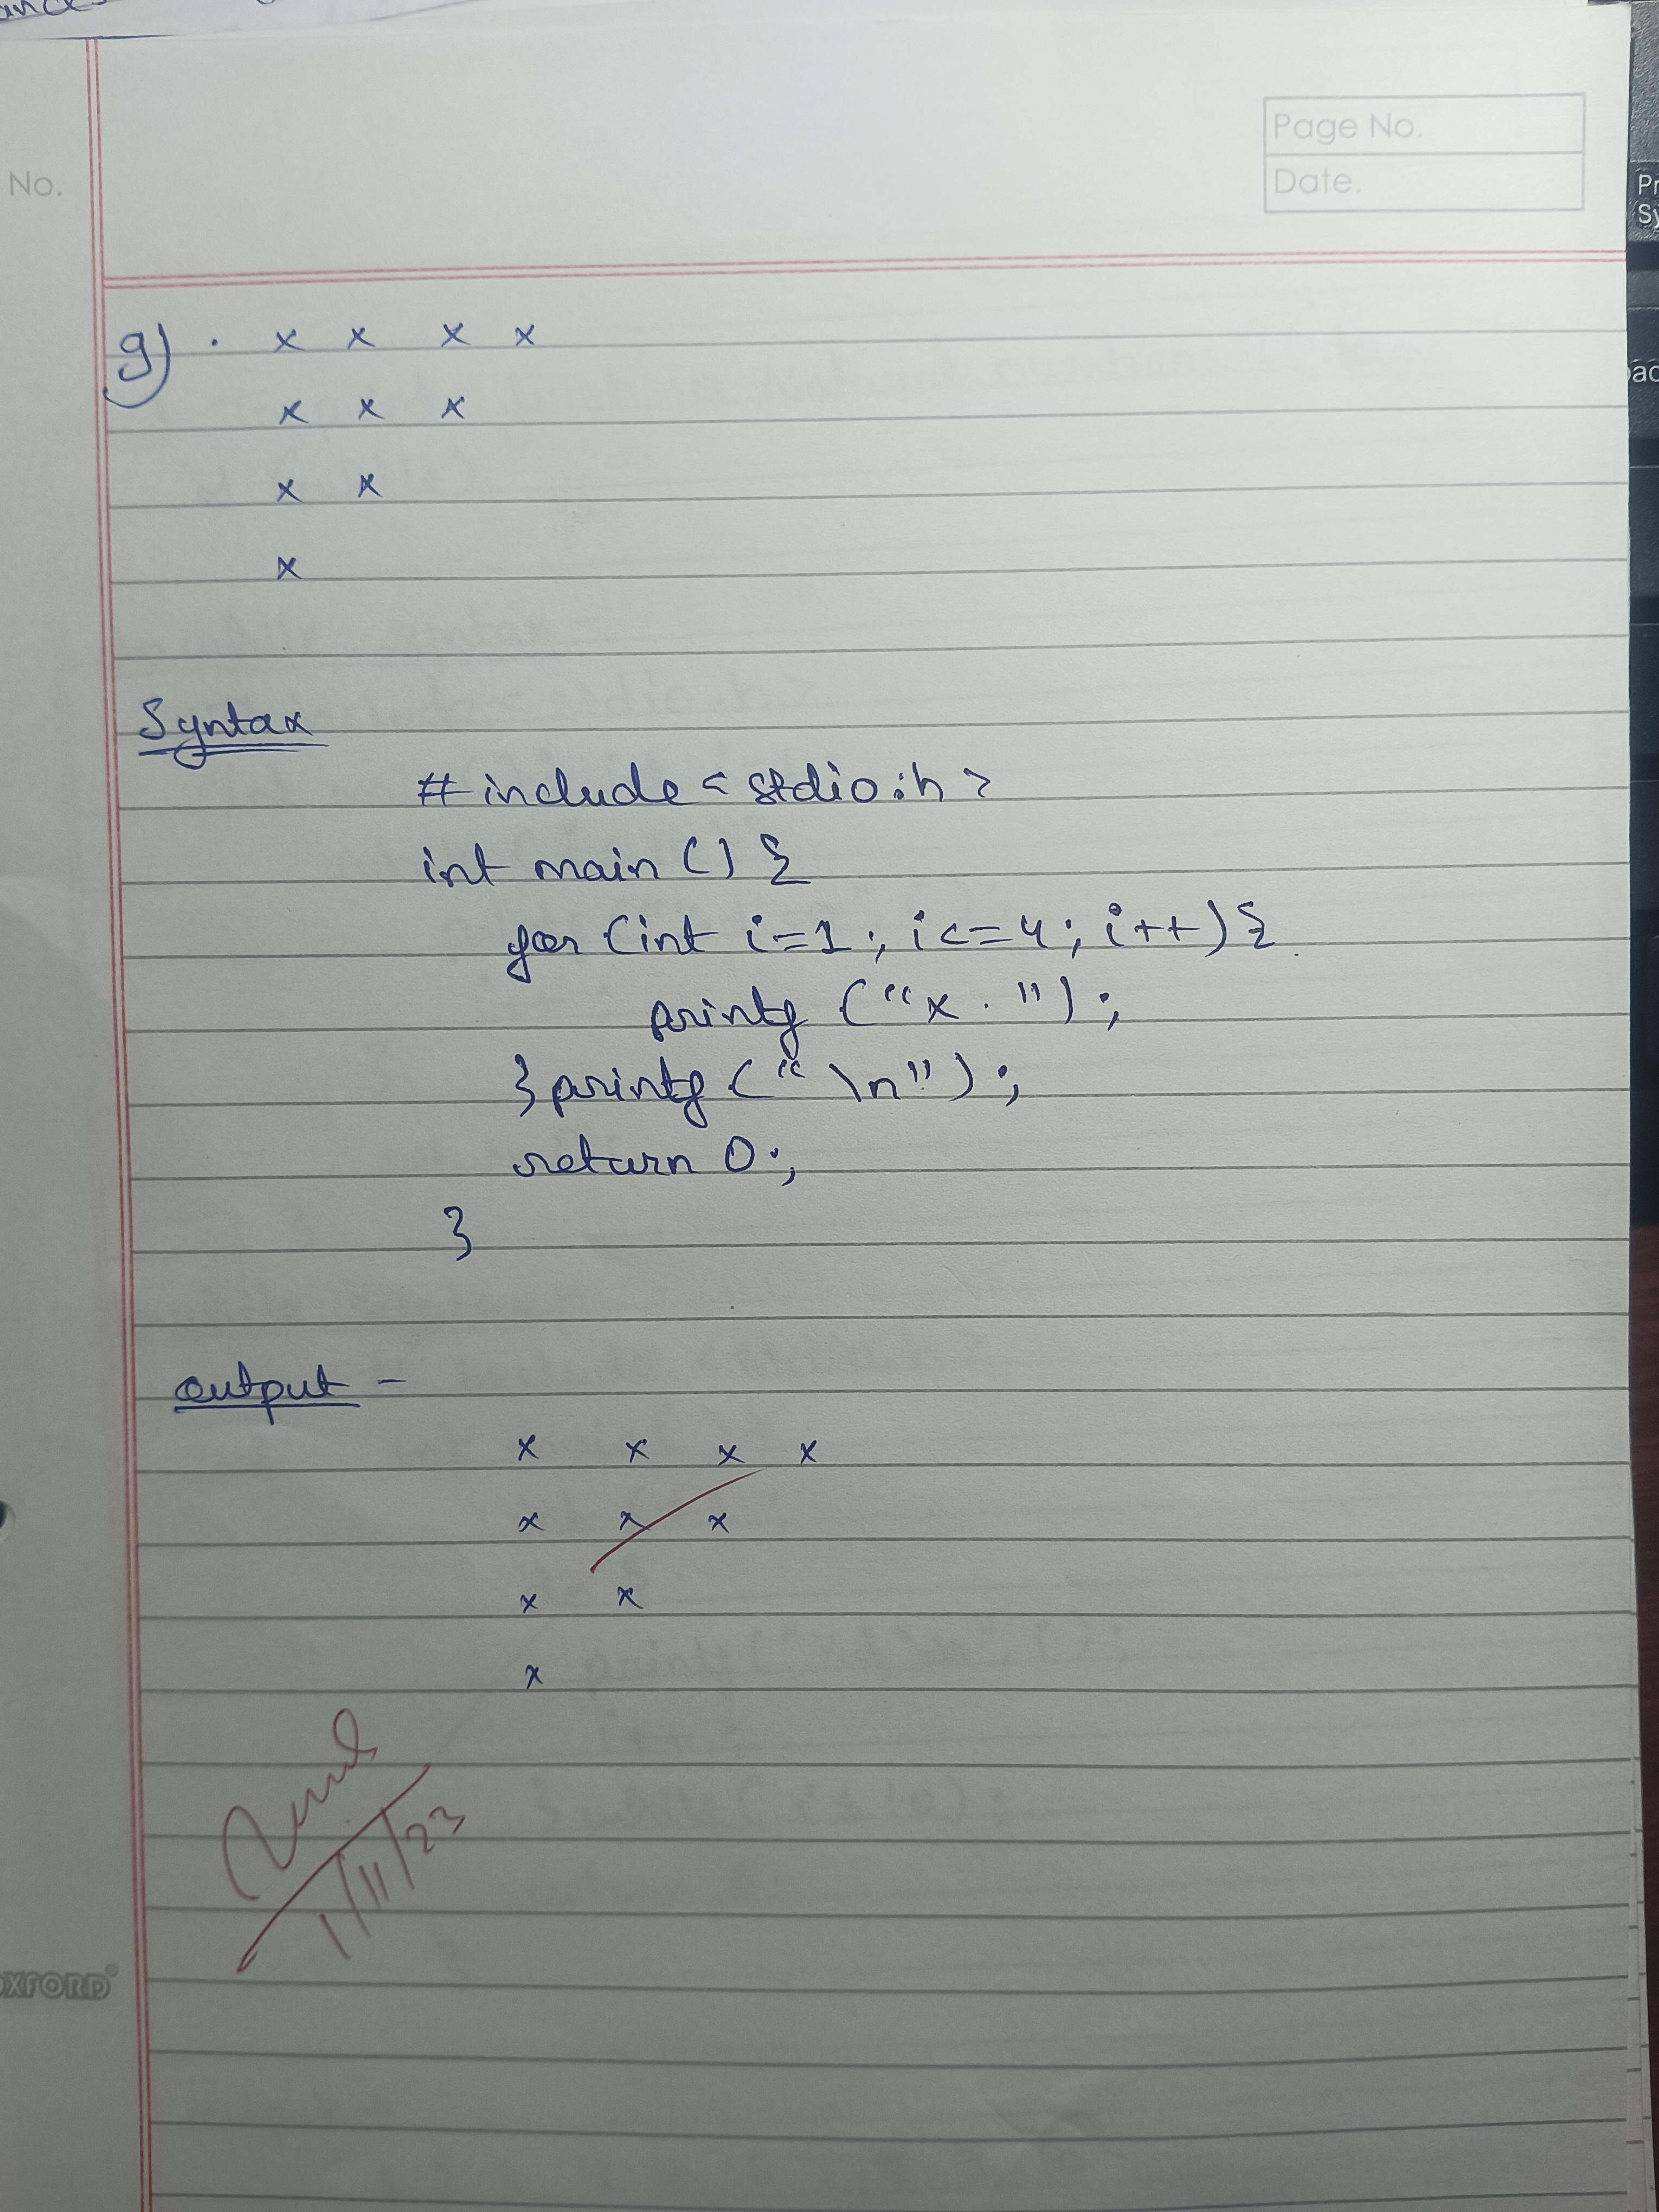 Page No.
Date.
No.
g) . x x x x
x x x
x x
x
Syntax
# include < stdio.h >
int main () {
for (int i=1; i<=4; i++) {
printf ("x . ");
} printf (" \n");
return 0;
}
output -
x x x x
x x x
x x
x
1/11/23
OXFORD